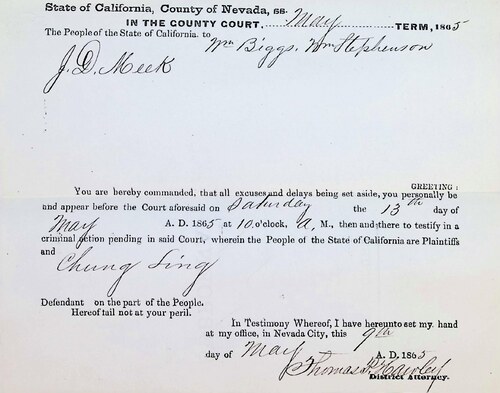 State of California, County of Nevada, ss.
IN THE COUNTY COURT, May TERM, 1865
The People of the State of California. to Wm Biggs, Wm Stephenson
J. D. Meek
GREETING:
You are hereby commanded, that all excuses and delays being set aside, you personally be
and appear before the Court aforesaid on Saturday the 13th day of
May A. D. 1865 at 10 o'clock, A, M., then and there to testify in a
criminal action pending in said Court, wherein the People of the State of California are Plaintiffs
and Chung Ling
Defendant on the part of the People.
Hereof fail not at your peril.
In Testimony Whereof, I have hereunto set my hand
at my office, in Nevada City, this 9th
day of May A. D. 1865
Thomas P. Hawley
District Attorney.